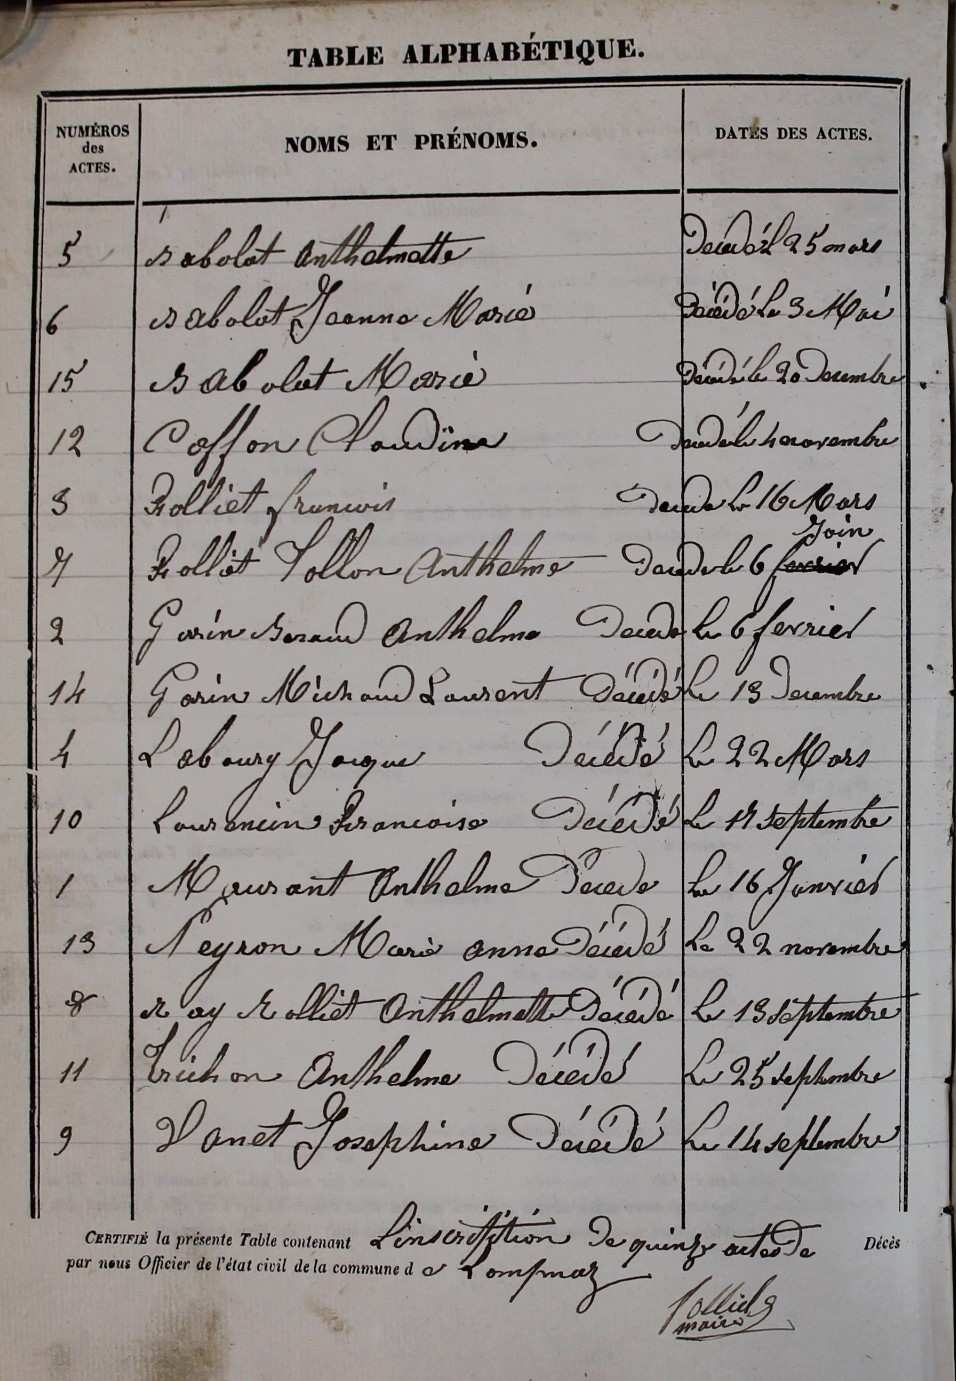 TABLE ALPHABÉTIQUE.
NUMÉROS des ACTES. NOMS ET PRÉNOMS. DATES DES ACTES.
5 Babolat Anthelmette Décédé le 25 mars
6 Babolat Jeanne Marie Décédé Le 3 Mai
15 Babolat Marie Décédé le 20 Decembre
12 Coffon Claudine Decedé le 4 novembre
3 Folliet françois Decede Le 16 Mars
Join
7 Folliet Tollon Anthelme Decede le 6 fevrier
2 Garin Beraud Anthelme Decede Le 6 fevrier
14 Garin Michaud Laurent Décédé Le 13 Decembre
4 Laboury Jacque Décédé Le 22 Mars
10 Laurencin Francoise Décédé Le 17 septembre
1 Maurant Anthelme Décede Le 16 Janvier
13 Peyron Marie anne Décédé Le 22 novembre
8 Ray Rolliet Anthelmette Décédé Le 13 septembre
11 Trichon Anthelme Décédé Le 25 septembre
9 Vanet Josephine Décédé Le 14 septembre
CERTIFIÉ la présente Table contenant L'inscription de quinze actes de Décès
par nous Officier de l'état civil de la commune d e Lompnaz
maire